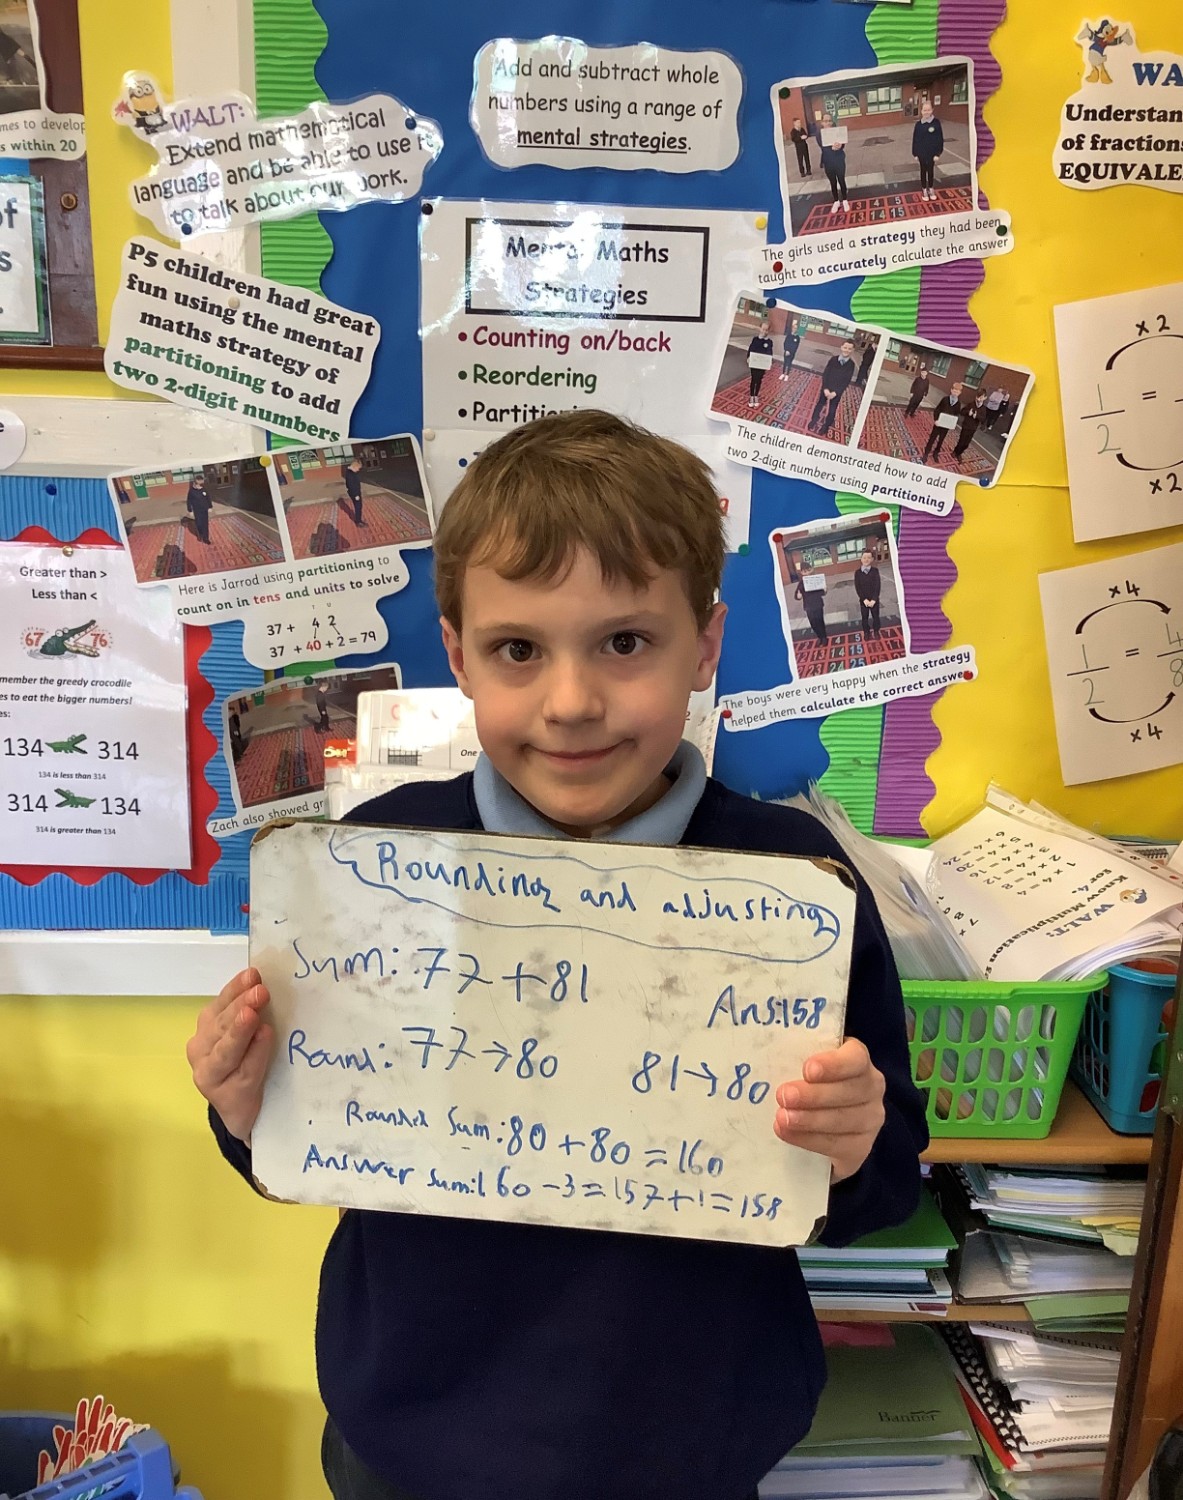 mes to develop
s within 20
of
s
WALT:
Extend mathematical
language and be able to use it
to talk about our work.
Add and subtract whole
numbers using a range of
mental strategies.
WA
Understan
of fractions
EQUIVALE
P5 children had great
fun using the mental
maths strategy of
partitioning to add
two 2-digit numbers
Mental Maths
Strategies
• Counting on/back
• Reordering
• Partitioning
The girls used a strategy they had been
taught to accurately calculate the answer
The children demonstrated how to add
two 2-digit numbers using partitioning
The boys were very happy when the strategy
helped them calculate the correct answer
Here is Jarrod using partitioning to
count on in tens and units to solve
37 + 4 2
37 + 40 + 2 = 79
Zach also showed gr
Greater than >
Less than <
67 76
member the greedy crocodile
es to eat the bigger numbers!
es:
134 314
134 is less than 314
314 134
314 is greater than 134
x 2
1/2 =
x 2
x 4
1/2 = 4/8
x 4
One
WALT:
Know Multiplication
for 4.
1 x 4 = 4
2 x 4 = 8
3 x 4 = 12
4 x 4 = 16
5 x 4 = 20
6 x 4 = 24
Rounding and adjusting
Sum: 77 + 81
Ans:158
Round: 77 → 80 81 → 80
Rounded Sum: 80 + 80 = 160
Answer sum: 160 - 3 = 157 + 1 = 158
Banner